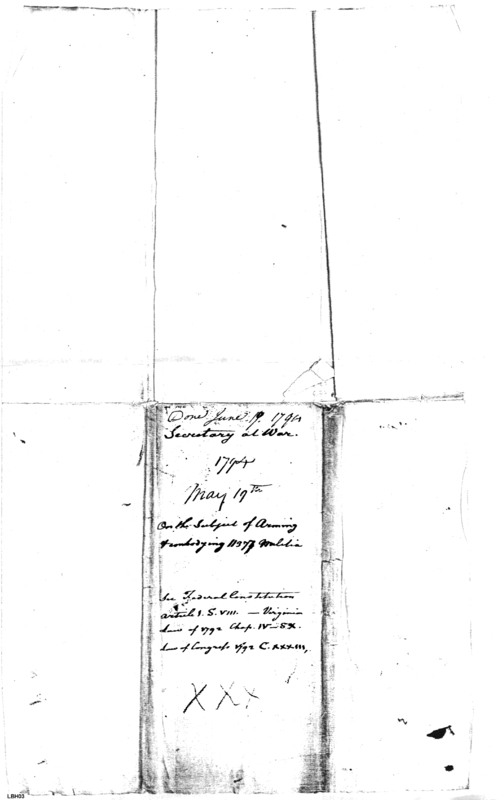 Done June 19. 1794
Secretary at War.
1794
May 19th
On the Subject of Arming
& embodying 11377 Militia
See Federal Constitution
Article 1. S. VIII. — Virginia
Laws of 1792 Chap. IV — SX.
Law of Congress 1792 C. XXXIII,
XXX
LBH03